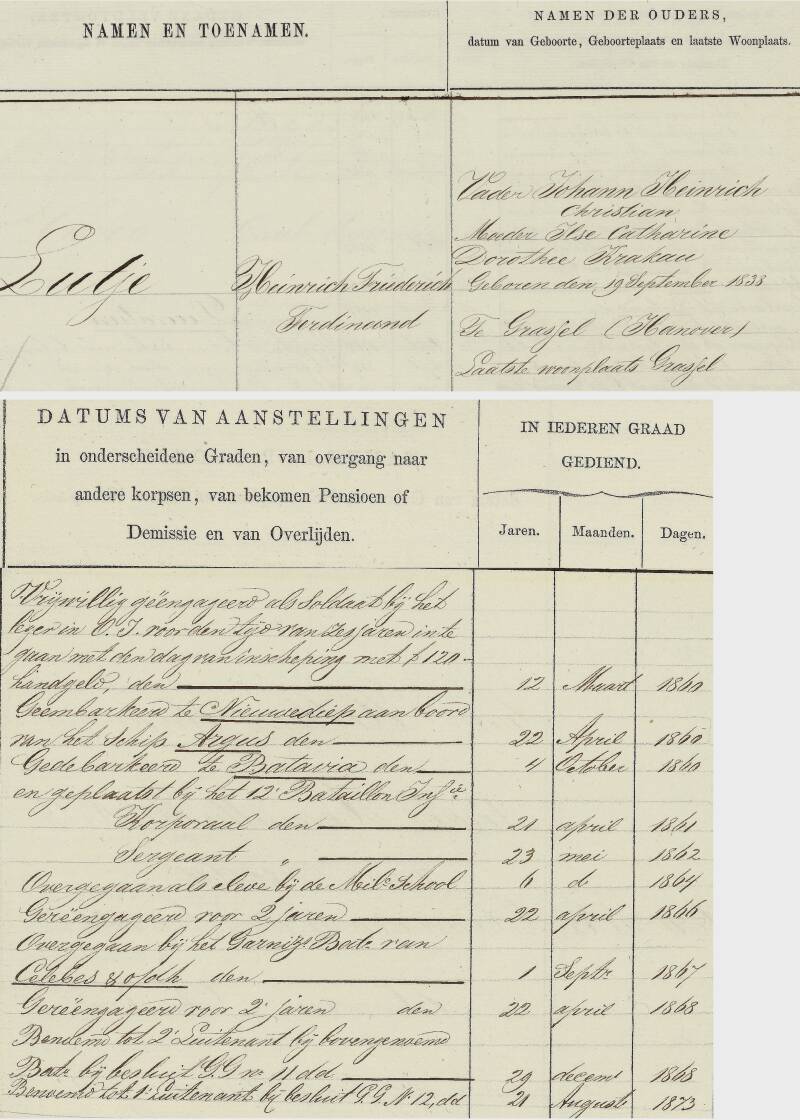 NAMEN EN TOENAMEN.
NAMEN DER OUDERS,
datum van Geboorte, Geboorteplaats en laatste Woonplaats.
Lutje
Heinrich Friederich
Ferdinand
Vader Johann Heinrich
Christian
Moeder Ilse Catharine
Dorothee Krakau
Geboren den 19 September 1838
Te Grassel (Hanover)
Laatste woonplaats Grassel
DATUMS VAN AANSTELLINGEN
in onderscheidene Graden, van overgang naar
andere korpsen, van bekomen Pensioen of
Demissie en van Overlijden.
IN IEDEREN GRAAD
GEDIEND.
Jaren. Maanden. Dagen.
Vrijwillig geëngageerd als Soldaat bij het
leger in O. I. voor den tijd van zes jaren in te
gaan met den dag van inscheping met f 120-
handgeld, den 12 Maart 1860
Geembarkeerd te Nieuwediep aan boord
van het schip Argus den 22 April 1860
Gedebarkeerd te Batavia den 4 October 1860
en geplaatst bij het 12e Bataillon Infie
Korporaal den 21 april 1861
Sergeant " 23 mei 1862
Overgegaan als eleve bij de Mile School 6 do 1864
Gereëngageerd voor 2 jaren 22 april 1866
Overgegaan bij het Garnizs Batn van
Celebes & ofdh den 1 Septr 1867
Gereëngageerd voor 2 jaren den 22 april 1868
Benoemd tot 2e Luitenant bij bovengenoemd
Batn bij besluit G.G. no 11 dd 29 decemr 1868
Benoemd tot 1e Luitenant bij besluit G.G. No 12, dd 21 August 1873